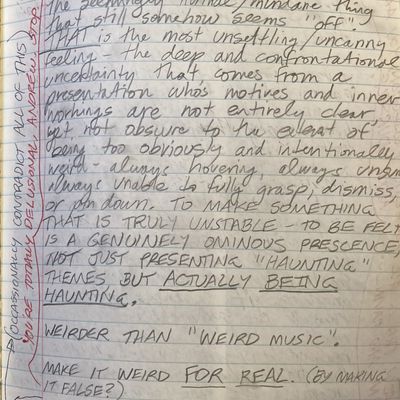 The seemingly normal/mundane thing
that still somehow seems "off".
THAT is the most unsettling/uncanny
feeling - the deep and confrontational
uncertainty that comes from a
presentation who's motives and inner
workings are not entirely clear,
yet, not obscure to the extent of
being too obviously and intentionally
weird - always hovering, always
always unable to fully grasp, dismiss,
or pin down. TO MAKE SOMETHING
THAT IS TRULY UNSTABLE - TO BE FELT
IS A GENUINELY OMINOUS PRESCENCE,
NOT JUST PRESENTING "HAUNTING"
THEMES BUT ACTUALLY BEING
HAUNTING.
WEIRDER THAN "WEIRD MUSIC".
MAKE IT WEIRD FOR REAL. (BY MAKING
IT FALSE?)
(OCCASSIONALLY CONTRADICT ALL OF THIS)
YOU'RE TOTALLY DELUSIONAL, ANDREW. STOP.